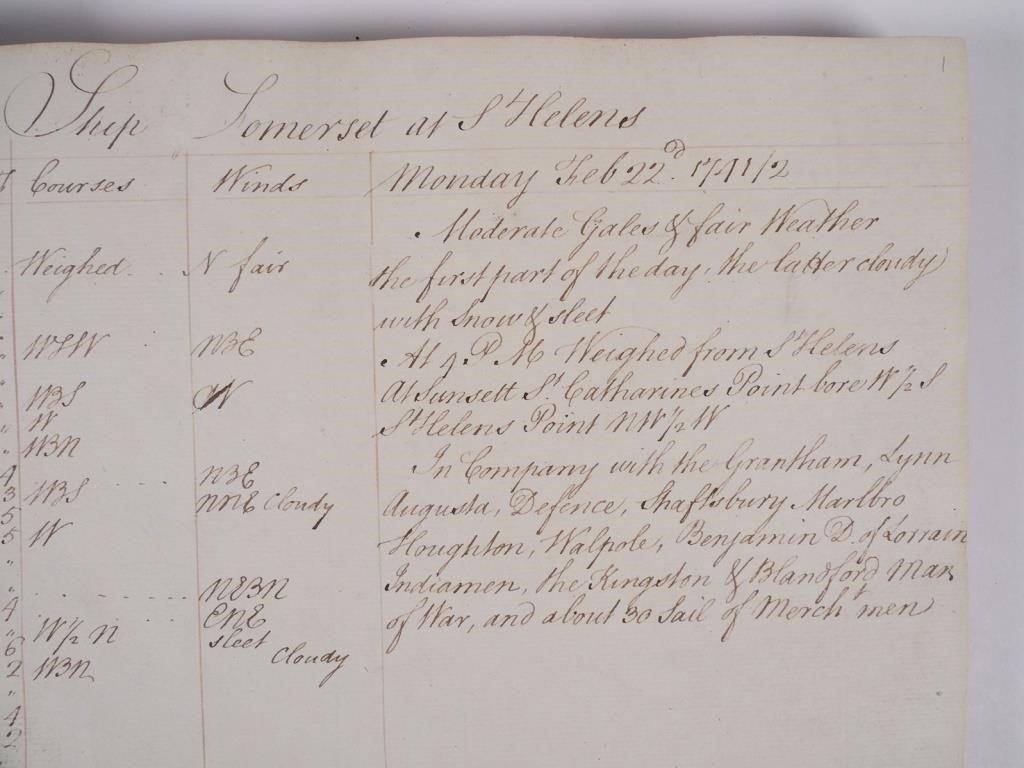 1
Ship Somerset at St Helens
Courses Winds Monday Feb 22d. 1741/2
Moderate Gales & fair Weather
Weighed N fair the first part of the day, the latter cloudy
with Snow & sleet
WSW NBE At 1 P M Weighed from St Helens
WBS W At Sunsett St. Catharines Point bore W 1/2 S
W St Helens Point NW 1/2 W
WBN
4 NBE In Company with the Grantham, Lynn
3 WBS NNE Cloudy Augusta, Defence, Shaftsbury Marlbro
5
5 W Houghton, Walpole, Benjamin D. of Lorrain
" NEBN Indiamen, the Kingston & Blandford Man
4 ENE of War, and about 30 Sail of Mercht men
" W 1/2 N sleet
6 Cloudy
2 WBN
"
4